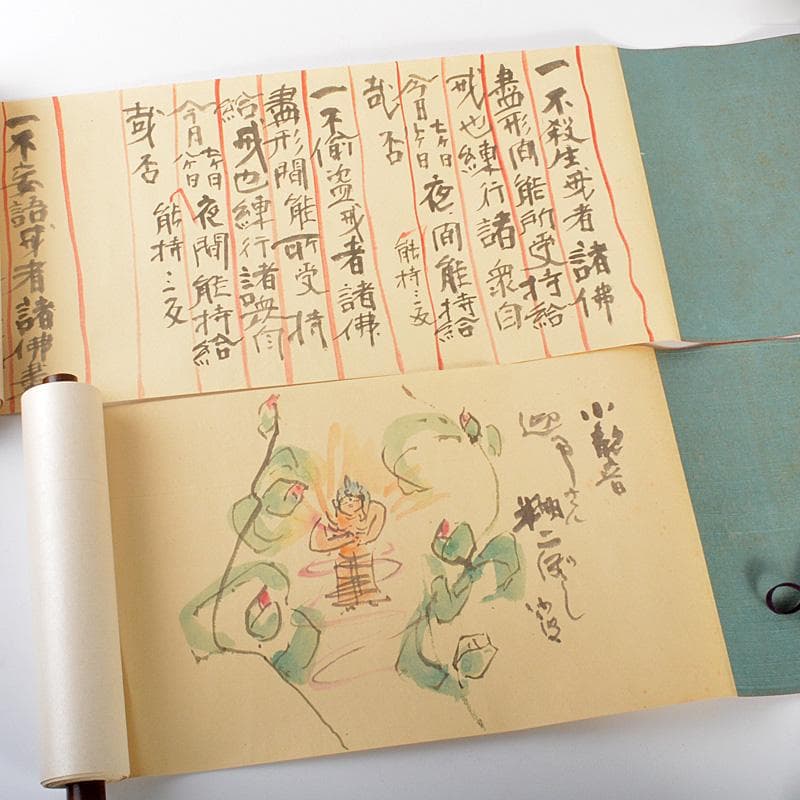 一不殺生戒者諸佛
盡形間能所受持給
戒也練行諸衆自
今月七ケ日夜間能持給
哉否 能持三反
一不偷盗戒者諸佛
盡形間能所受持
給戒也練行諸衆自
今月七ケ日夜間能持給
哉否
能持三反
一不妄語戒者諸佛盡
小観音
糊こぼし